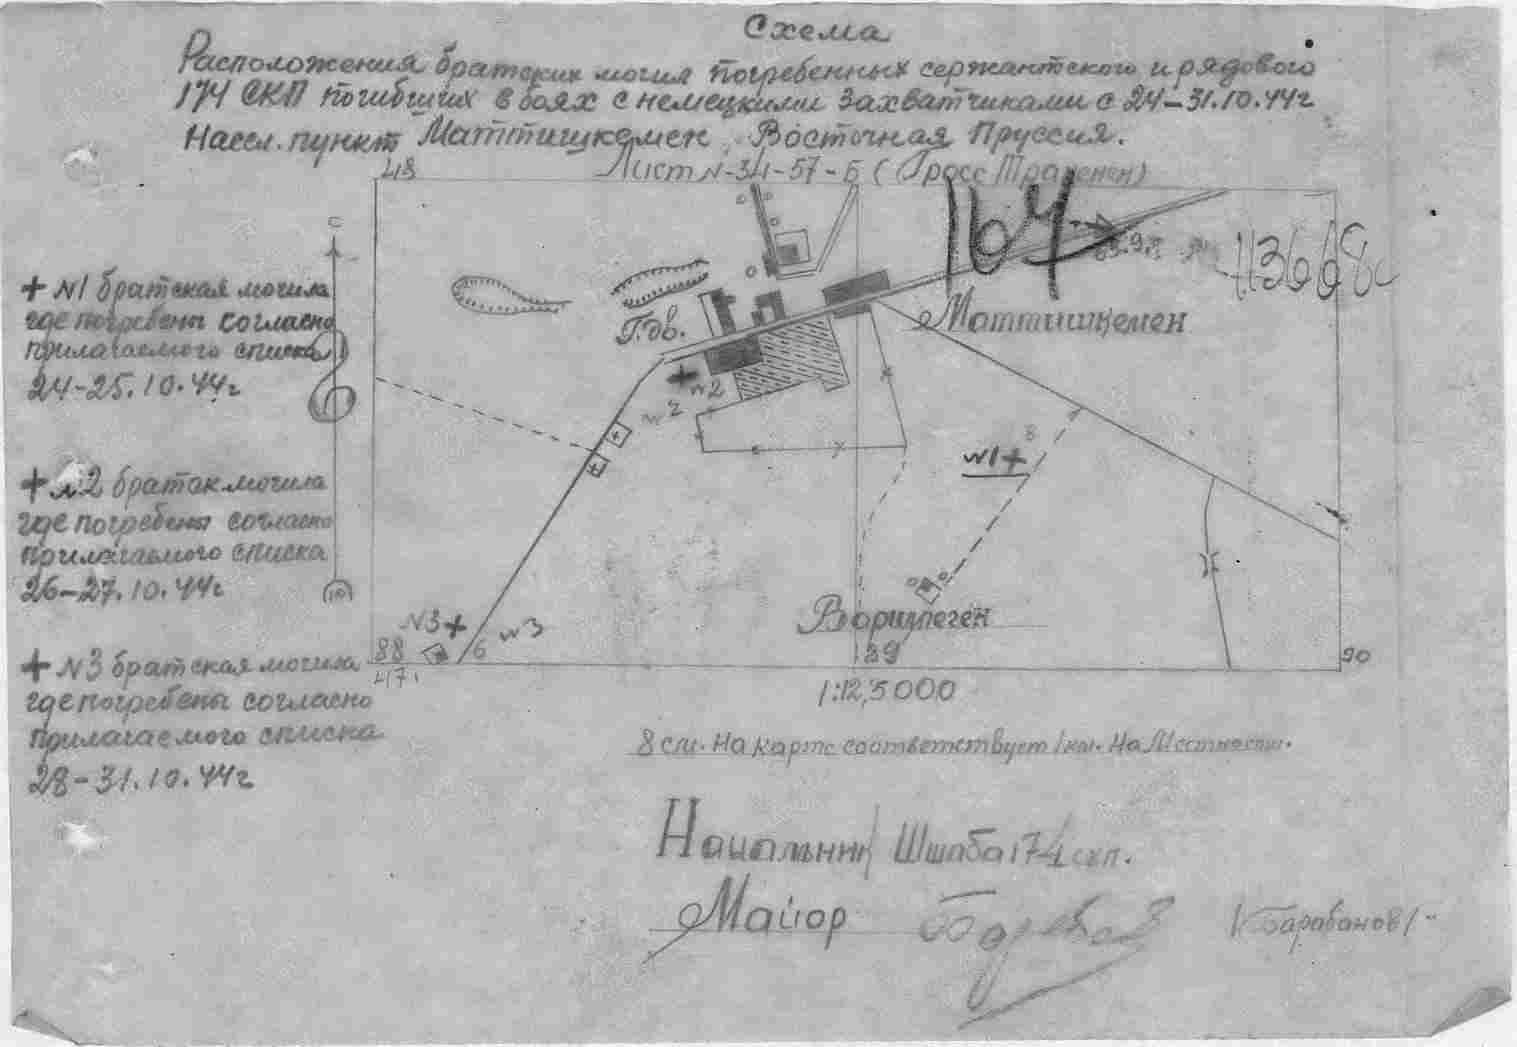 Схема
Расположения братских могил погребенных сержантского и рядового
174 СКП погибших в боях с немецкими захватчиками с 24-31.10.44г
Насел. пункт Маттишкемен, Восточная Пруссия.
Лист N-34-57-Б (Гросс Тракенен)
48
164
65.9
43668с
С
+ N1 братская могила
где погребены согласно
прилагаемого списка
24-25.10.44г
Г.дв.
Маттишкемен
N2
N2
N1+
8
+ N2 братск могила
где погребены согласно
прилагаемого списка
26-27.10.44г
Ю
Воризпеген
N3+
6
N3
88
47
89
90
+ N3 братская могила
где погребены согласно
прилагаемого списка
28-31.10.44г
1:12,5000
8 см. На карте соответствует 1 км. На Местности.
Начальник Штаба 174 скп.
Майор
/Барабанов/